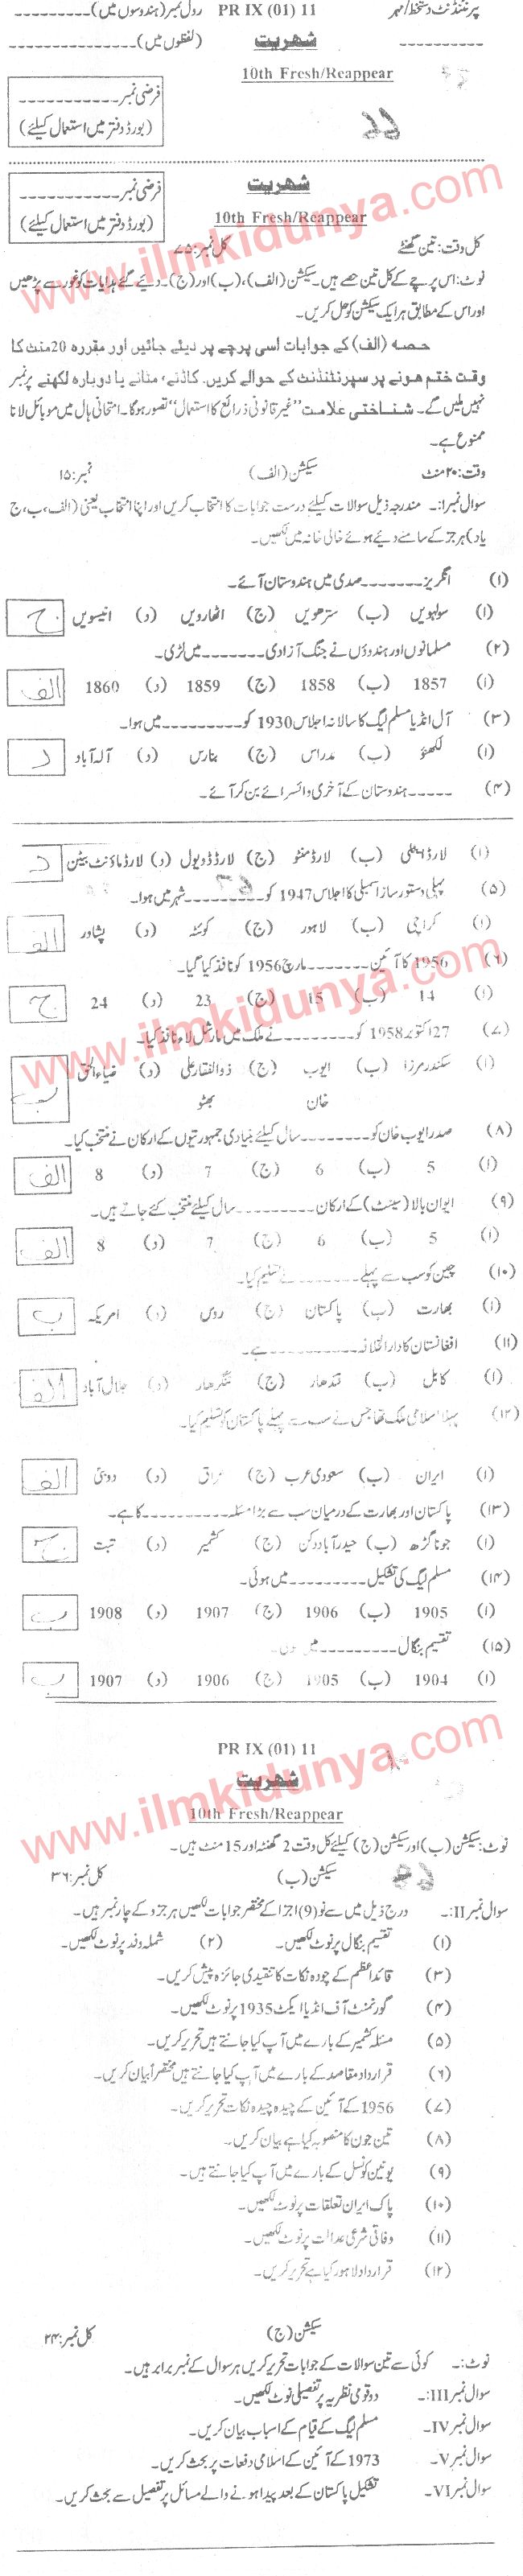 پرنٹنڈنٹ دستخط/مہر ---------- PR IX (01) 11 رول نمبر (ہندسوں میں) ----------
شہریت (لفظوں میں) ----------
10th Fresh/Reappear
فرضی نمبر ----------
(بورڈ دفتر میں استعمال کیلئے)
شہریت
فرضی نمبر ----------
(بورڈ دفتر میں استعمال کیلئے)
10th Fresh/Reappear
کل وقت: تین گھنٹے کل نمبر: ۷۵
نوٹ: اس پرچے کے کل تین حصے ہیں۔ سیکشن (الف)، (ب) اور (ج)۔ دیئے گئے ہدایات کو غور سے پڑھیں
اور اس کے مطابق ہر ایک سیکشن کو حل کریں۔
حصہ (الف) کے جوابات اسی پرچے پر دیئے جائیں اور مقررہ 20 منٹ کا
وقت ختم ہونے پر سپرنٹنڈنٹ کے حوالے کریں۔ کاٹنے، مٹانے یا دوبارہ لکھنے پر نمبر
نہیں ملیں گے۔ شناختی علامت "غیر قانونی ذرائع کا استعمال" تصور ہوگا۔ امتحانی ہال میں موبائل لانا
ممنوع ہے۔
وقت: ۲۰ منٹ سیکشن (الف) نمبر: ۱۵
سوال نمبرI:۔ مندرجہ ذیل سوالات کیلئے درست جوابات کا انتخاب کریں اور اپنا انتخاب یعنی (الف، ب، ج
یا د) ہر جز کے سامنے دیئے ہوئے خالی خانہ میں لکھیں۔
(۱) انگریز ------- صدی میں ہندوستان آئے۔
(ا) سولہویں (ب) سترھویں (ج) اٹھارویں (د) انیسویں ج
(۲) مسلمانوں اور ہندوؤں نے جنگ آزادی ------- میں لڑی۔
(ا) 1857 (ب) 1858 (ج) 1859 (د) 1860 الف
(۳) آل انڈیا مسلم لیگ کا سالانہ اجلاس 1930 کو --------- میں ہوا۔
(ا) لکھنؤ (ب) مدراس (ج) بنارس (د) آلہ آباد د
(۴) ----- ہندوستان کے آخری وائسرائے بن کر آئے۔
(ا) لارڈ ایٹلی (ب) لارڈ منٹو (ج) لارڈ ویول (د) لارڈ ماؤنٹ بیٹن د
(۵) پہلی دستور ساز اسمبلی کا اجلاس 1947 کو --------- شہر میں ہوا۔
(ا) کراچی (ب) لاہور (ج) کوئٹہ (د) پشاور الف
(۶) 1956 کا آئین -------- مارچ 1956 کو نافذ کیا گیا۔
(ا) 14 (ب) 15 (ج) 23 (د) 24 ج
(۷) 27 اکتوبر 1958 کو --------- نے ملک میں مارشل لاء نافذ کیا۔
(ا) سکندر مرزا (ب) ایوب خان (ج) ذوالفقار علی بھٹو (د) ضیاء الحق ب
(۸) صدر ایوب خان کو --------- سال کیلئے بنیادی جمہوریتوں کے ارکان نے منتخب کیا۔
(ا) 5 (ب) 6 (ج) 7 (د) 8 الف
(۹) ایوان بالا (سینٹ) کے ارکان --------- سال کیلئے منتخب کئے جاتے ہیں۔
(ا) 5 (ب) 6 (ج) 7 (د) 8 الف
(۱۰) چین کو سب سے پہلے --------- نے تسلیم کیا۔
(ا) بھارت (ب) پاکستان (ج) روس (د) امریکہ ب
(۱۱) افغانستان کا دارالخلافہ --------- ہے۔
(ا) کابل (ب) قندھار (ج) ننگرھار (د) جلال آباد الف
(۱۲) پہلا اسلامی ملک تھا جس نے سب سے پہلے پاکستان کو تسلیم کیا۔
(ا) ایران (ب) سعودی عرب (ج) عراق (د) دوبئی الف
(۱۳) پاکستان اور بھارت کے درمیان سب سے بڑا مسئلہ --------- کا ہے۔
(ا) جوناگڑھ (ب) حیدرآباد دکن (ج) کشمیر (د) تبت ج
(۱۴) مسلم لیگ کی تشکیل --------- میں ہوئی۔
(ا) 1905 (ب) 1906 (ج) 1907 (د) 1908 ب
(۱۵) تقسیم بنگال --------- میں ہوئی۔
(ا) 1904 (ب) 1905 (ج) 1906 (د) 1907 ب
PR IX (01) 11
شہریت
10th Fresh/Reappear
نوٹ: سیکشن (ب) اور سیکشن (ج) کیلئے کل وقت 2 گھنٹہ اور 15 منٹ ہیں۔
سیکشن (ب) کل نمبر: ۳۶
سوال نمبرII:۔ درج ذیل میں سے نو (9) اجزا کے مختصر جوابات لکھیں ہر جزو کے چار نمبر ہیں۔
(۱) تقسیم بنگال پر نوٹ لکھیں۔ (۲) شملہ وفد پر نوٹ لکھیں۔
(۳) قائداعظم کے چودہ نکات کا تنقیدی جائزہ پیش کریں۔
(۴) گورنمنٹ آف انڈیا ایکٹ 1935 پر نوٹ لکھیں۔
(۵) مسئلہ کشمیر کے بارے میں آپ کیا جانتے ہیں تحریر کریں۔
(۶) قرارداد مقاصد کے بارے میں آپ کیا جانتے ہیں مختصراً بیان کریں۔
(۷) 1956 کے آئین کے چیدہ چیدہ نکات تحریر کریں۔
(۸) تین جون کا منصوبہ کیا ہے بیان کریں۔
(۹) یونین کونسل کے بارے میں آپ کیا جانتے ہیں۔
(۱۰) پاک ایران تعلقات پر نوٹ لکھیں۔
(۱۱) وفاقی شرعی عدالت پر نوٹ لکھیں۔
(۱۲) قرارداد لاہور کیا ہے تحریر کریں۔
سیکشن (ج) کل نمبر: ۲۴
نوٹ:۔ کوئی سے تین سوالات کے جوابات تحریر کریں ہر سوال کے نمبر برابر ہیں۔
سوال نمبرIII:۔ دو قومی نظریہ پر تفصیلی نوٹ لکھیں۔
سوال نمبرIV۔ مسلم لیگ کے قیام کے اسباب بیان کریں۔
سوال نمبرV۔ 1973 کے آئین کے اسلامی دفعات پر بحث کریں۔
سوال نمبرVI۔ تشکیل پاکستان کے بعد پیدا ہونے والے مسائل پر تفصیل سے بحث کریں۔
www.ilmkidunya.com
www.ilmkidunya.com
www.ilmkidunya.com